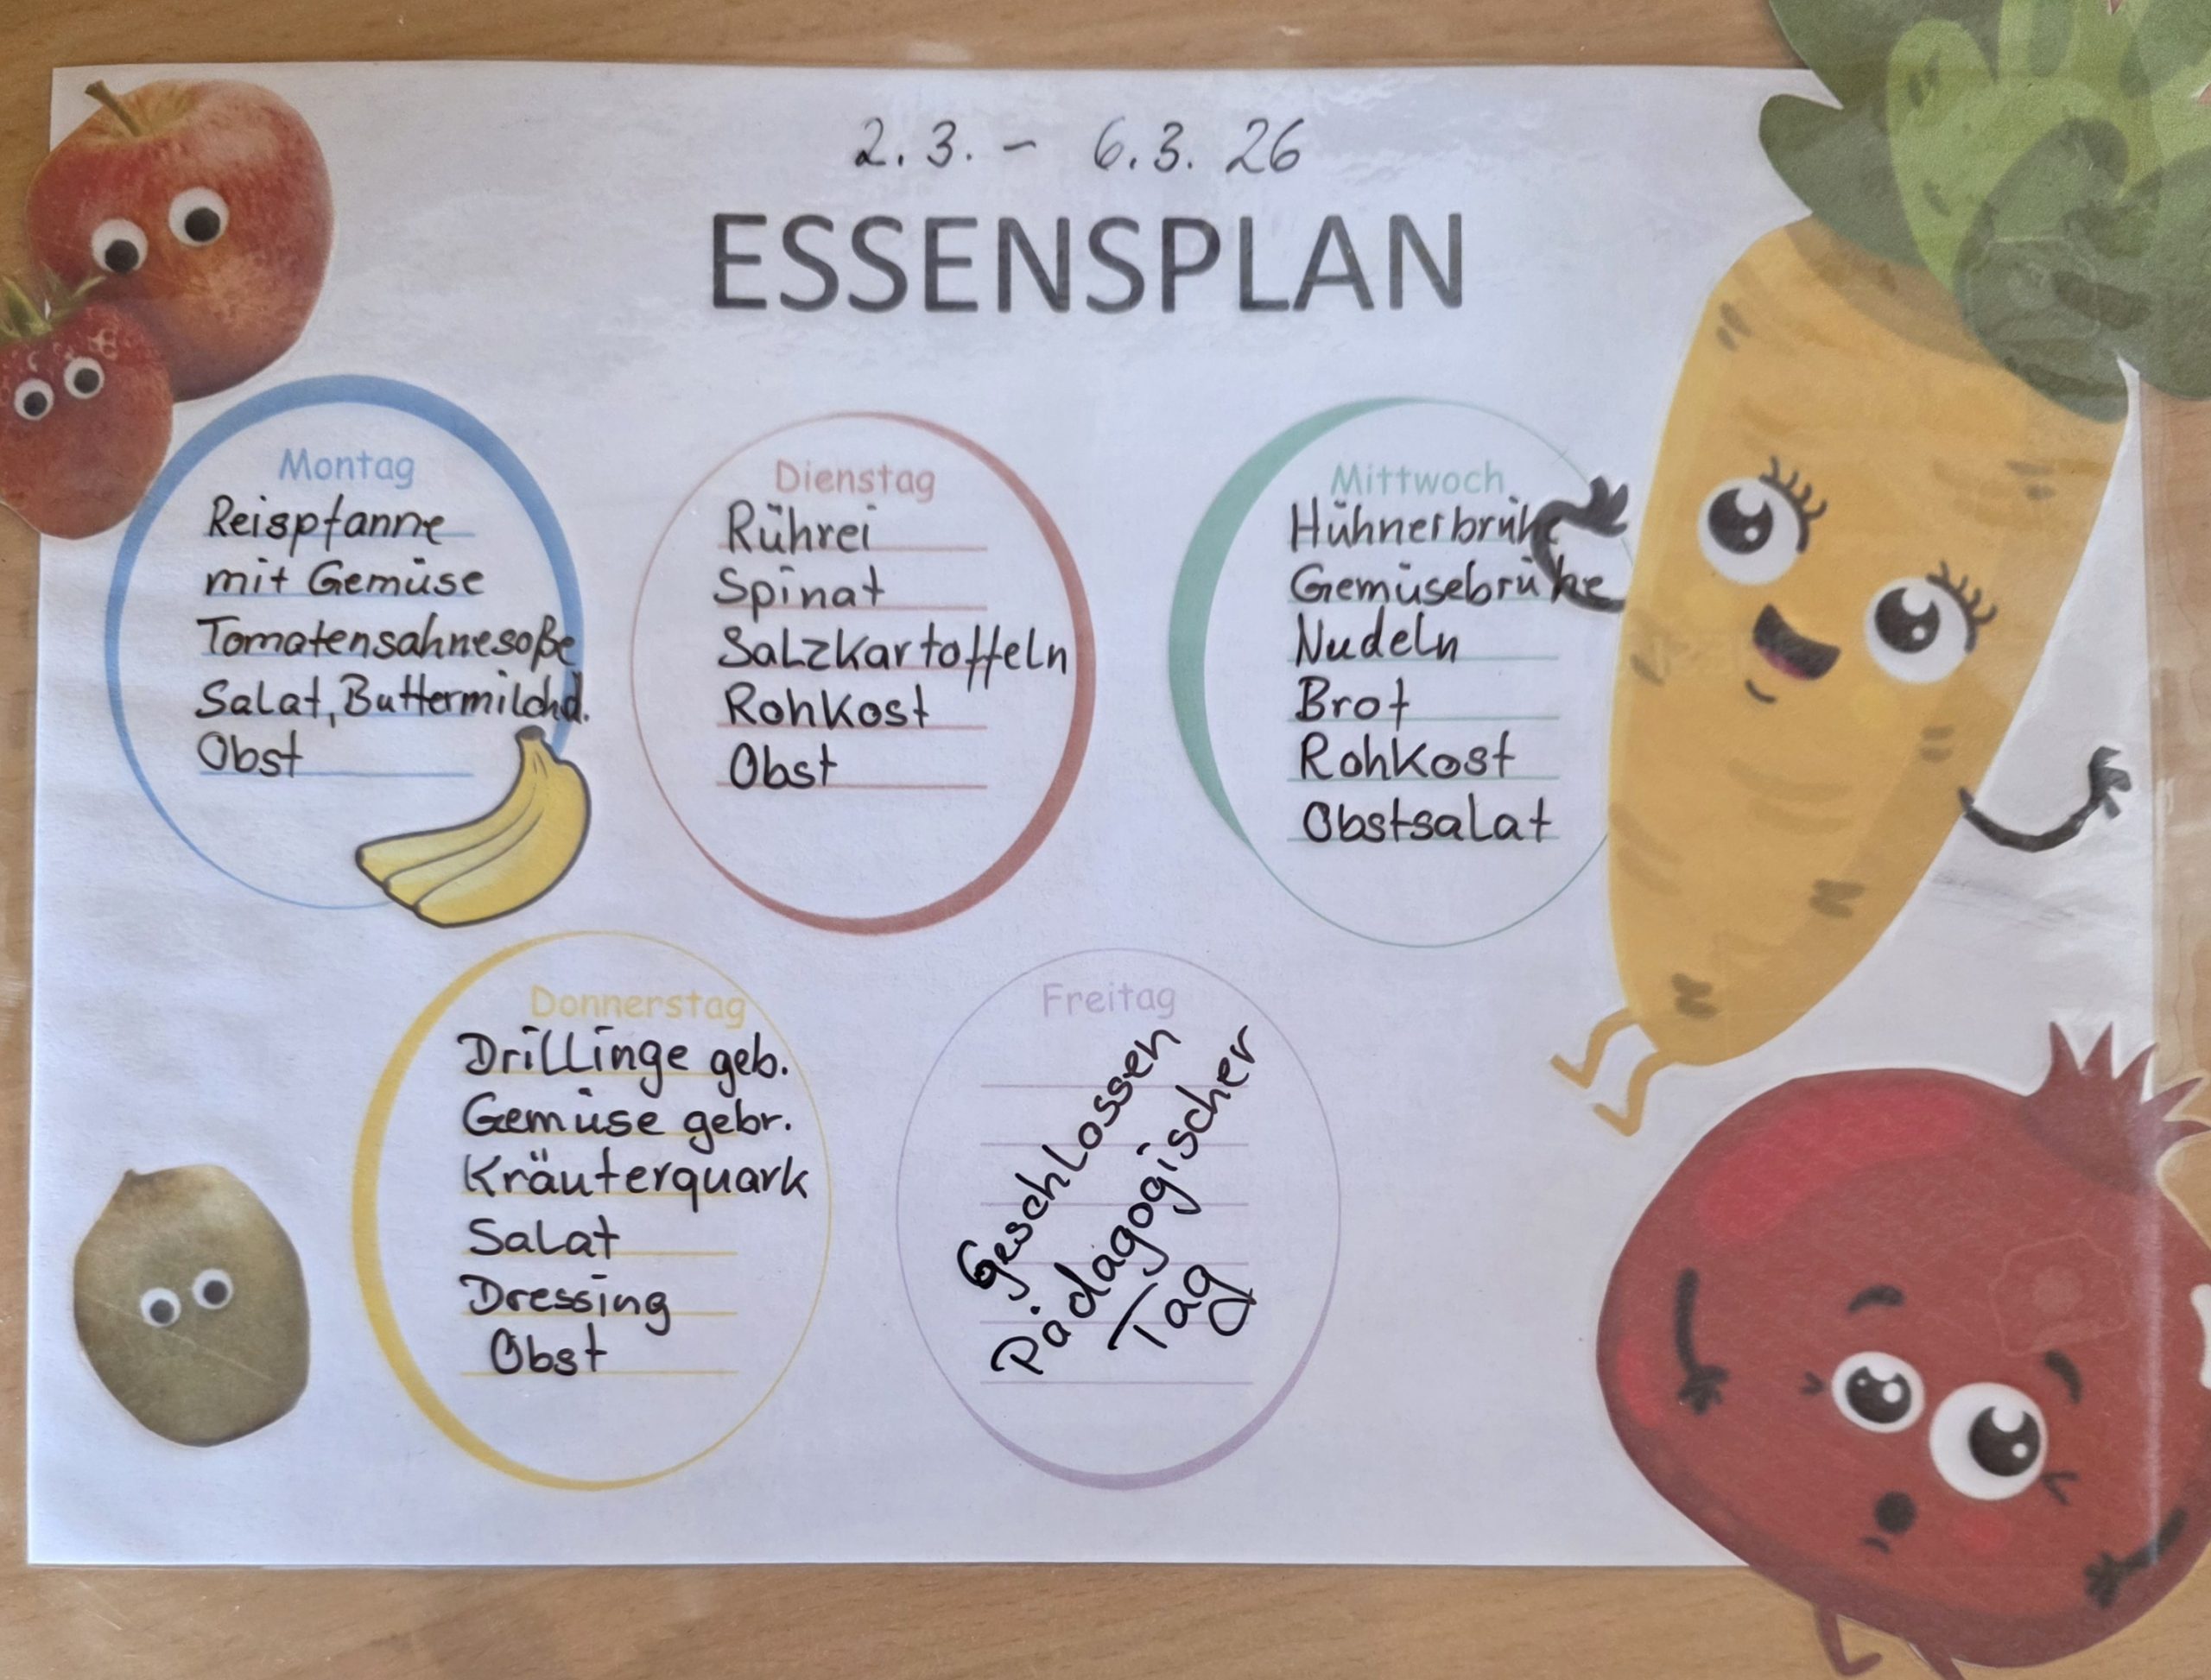 2.3. - 6.3. 26
ESSENSPLAN
Montag
Reispfanne
mit Gemüse
Tomatensahnesoße
Salat, Buttermilchd.
Obst
Dienstag
Rührei
Spinat
Salzkartoffeln
Rohkost
Obst
Mittwoch
Hühnerbrühe
Gemüsebrühe
Nudeln
Brot
Rohkost
Obstsalat
Donnerstag
Drillinge geb.
Gemüse gebr.
Kräuterquark
Salat
Dressing
Obst
Freitag
Geschlossen
Pädagogischer
Tag